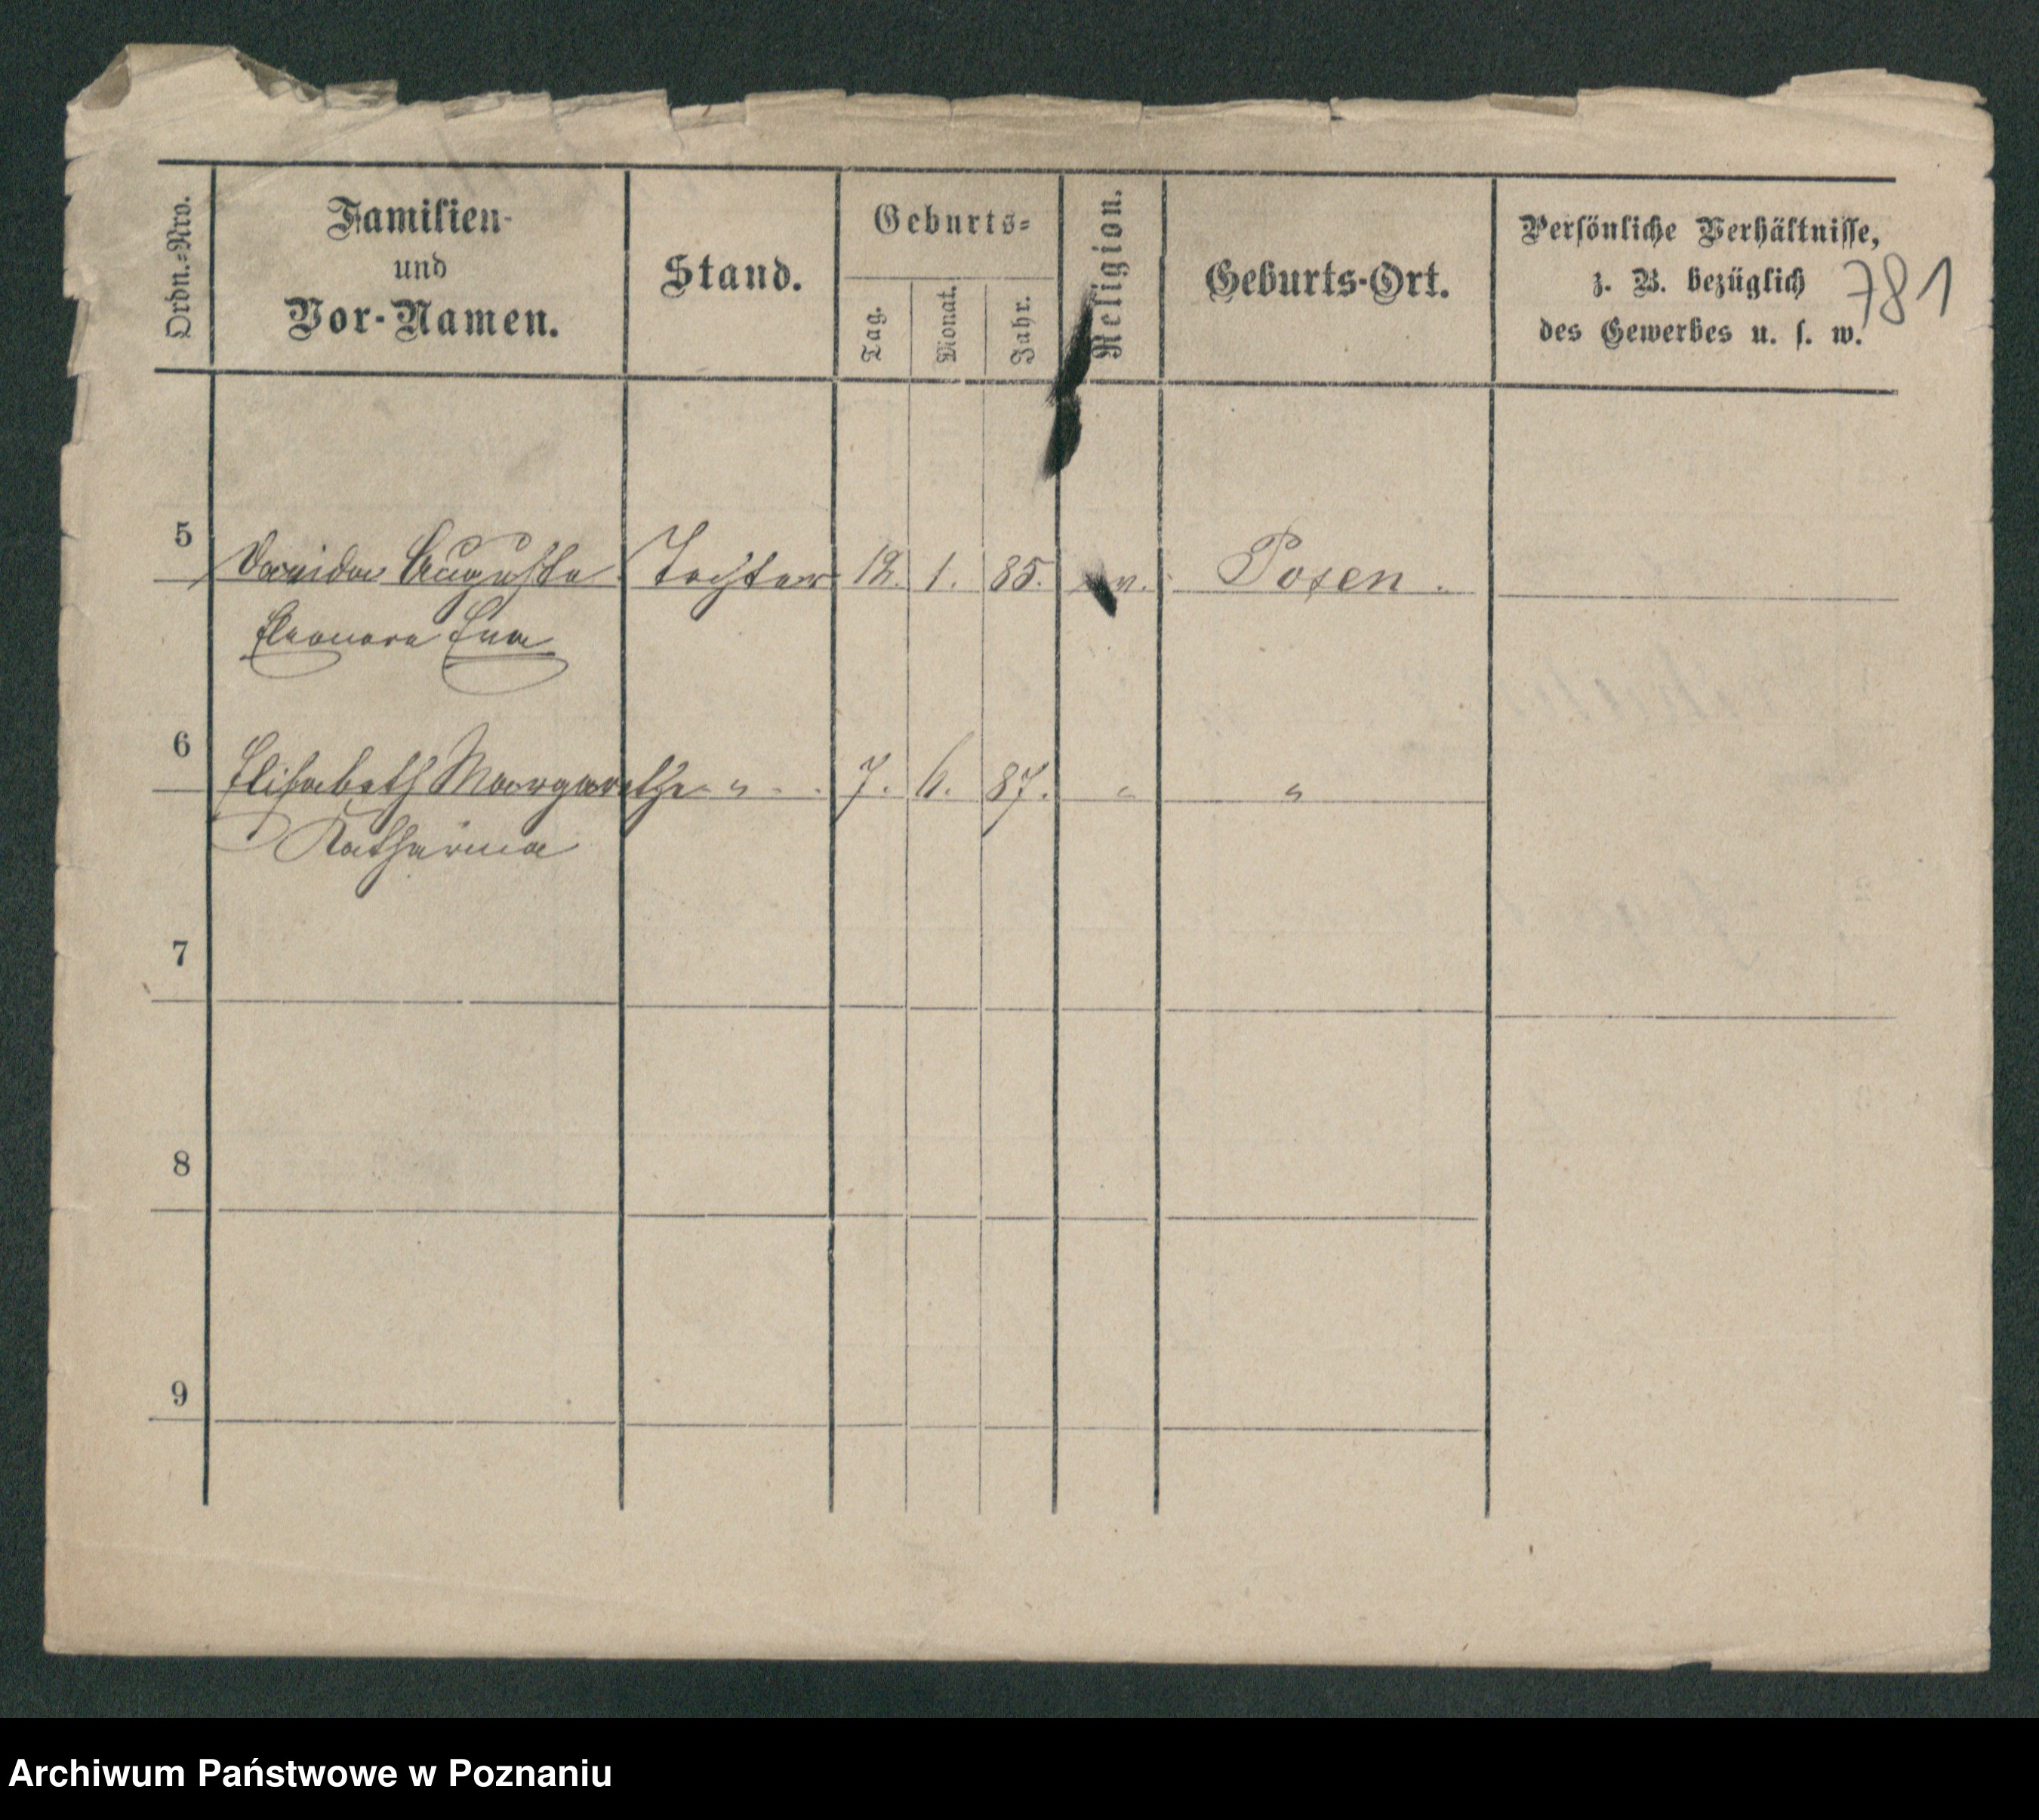 Ordn.-Nro.
Familien-
und
Vor-Namen.
Stand.
Geburts-
Tag.
Monat.
Jahr.
Religion.
Geburts-Ort.
Persönliche Verhältnisse,
z. B. bezüglich
des Gewerbes u. s. w.
781
5 Auguste Tochter 12. 1. 85. Posen.
Eleonore Eva
6 Elisabeth Margarethe " 7. 6. 87. " "
Katharina
7
8
9
Archiwum Państwowe w Poznaniu